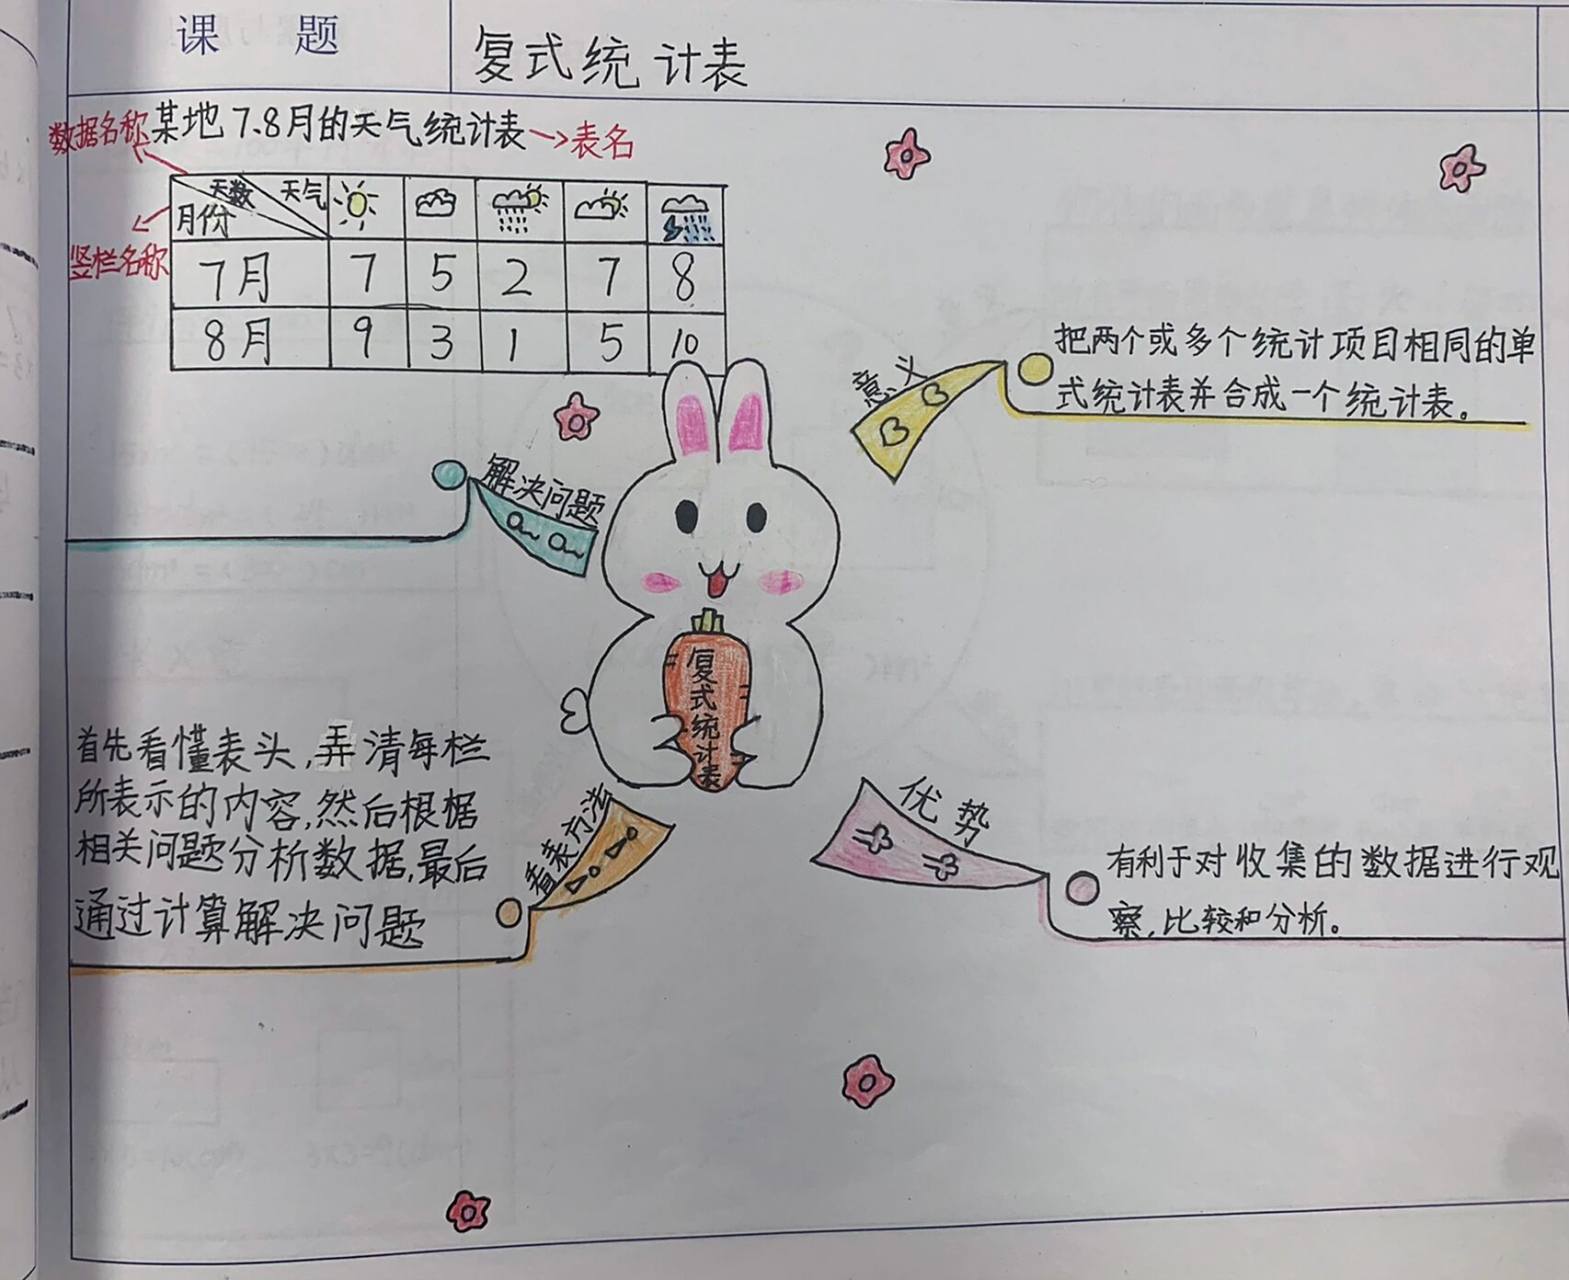 课 题
复式统计表
数据名称
某地7、8月的天气统计表→表名
天数 天气
月份
竖栏名称
7月 7 5 2 7 8
8月 9 3 1 5 10
意义
把两个或多个统计项目相同的单
式统计表并合成一个统计表。
解决问题
复式统计表
首先看懂表头,弄清每栏
所表示的内容,然后根据
相关问题分析数据,最后
通过计算解决问题
看表方法
优势
有利于对收集的数据进行观
察,比较和分析。